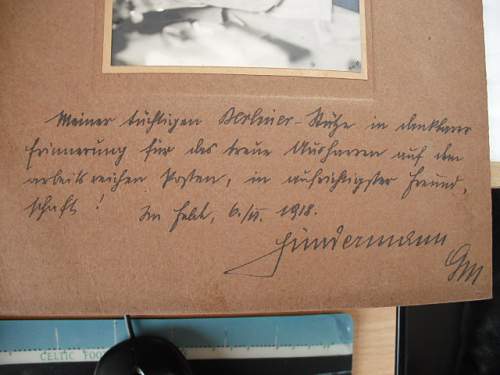 Meiner tüchtigen Berliner-Stütze in dankbarer
Erinnerung für das treue Ausharren auf dem
arbeitsreichen Posten, in aufrichtigster Freund,
schaft! Im Felde, 6./VI. 1918.
Hindermann
CELTIC FOO